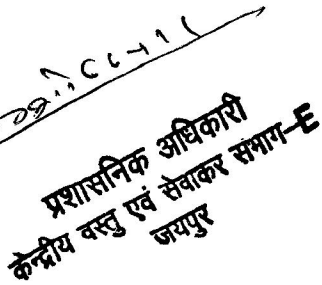 प्रशासनिक अधिकारी
केन्द्रीय वस्तु एवं सेवाकर संभाग-E
जयपुर